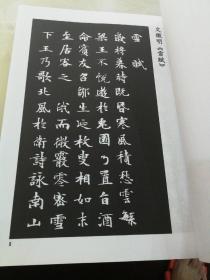 文徵明《雪赋》
雪賦
歲將暮時既昏寒風積愁雲繁
梁王不悅遊於兔園乃置旨酒
命賓友召鄒生延枚叟相如末
至居客之右俄而微霰零密雪
下王乃歌北風於衛詩詠南山